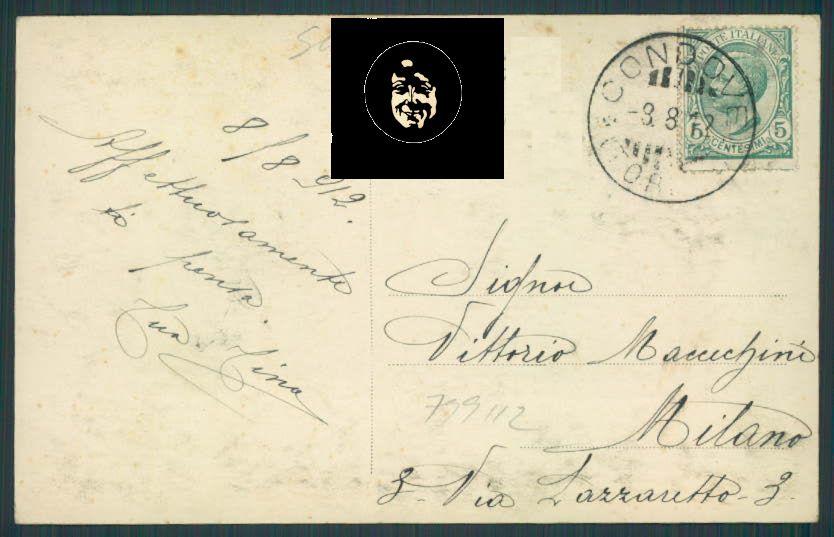 8/8 912.
Affettuosamente
ti pensa
tua Lina
POSTE ITALIANE
5 5
CENTESIMI
CONDOVE
-8.8.12
TOR
Signor
Vittorio Macecchini
Milano
3 - Via Lazzaretto - 3.
799112